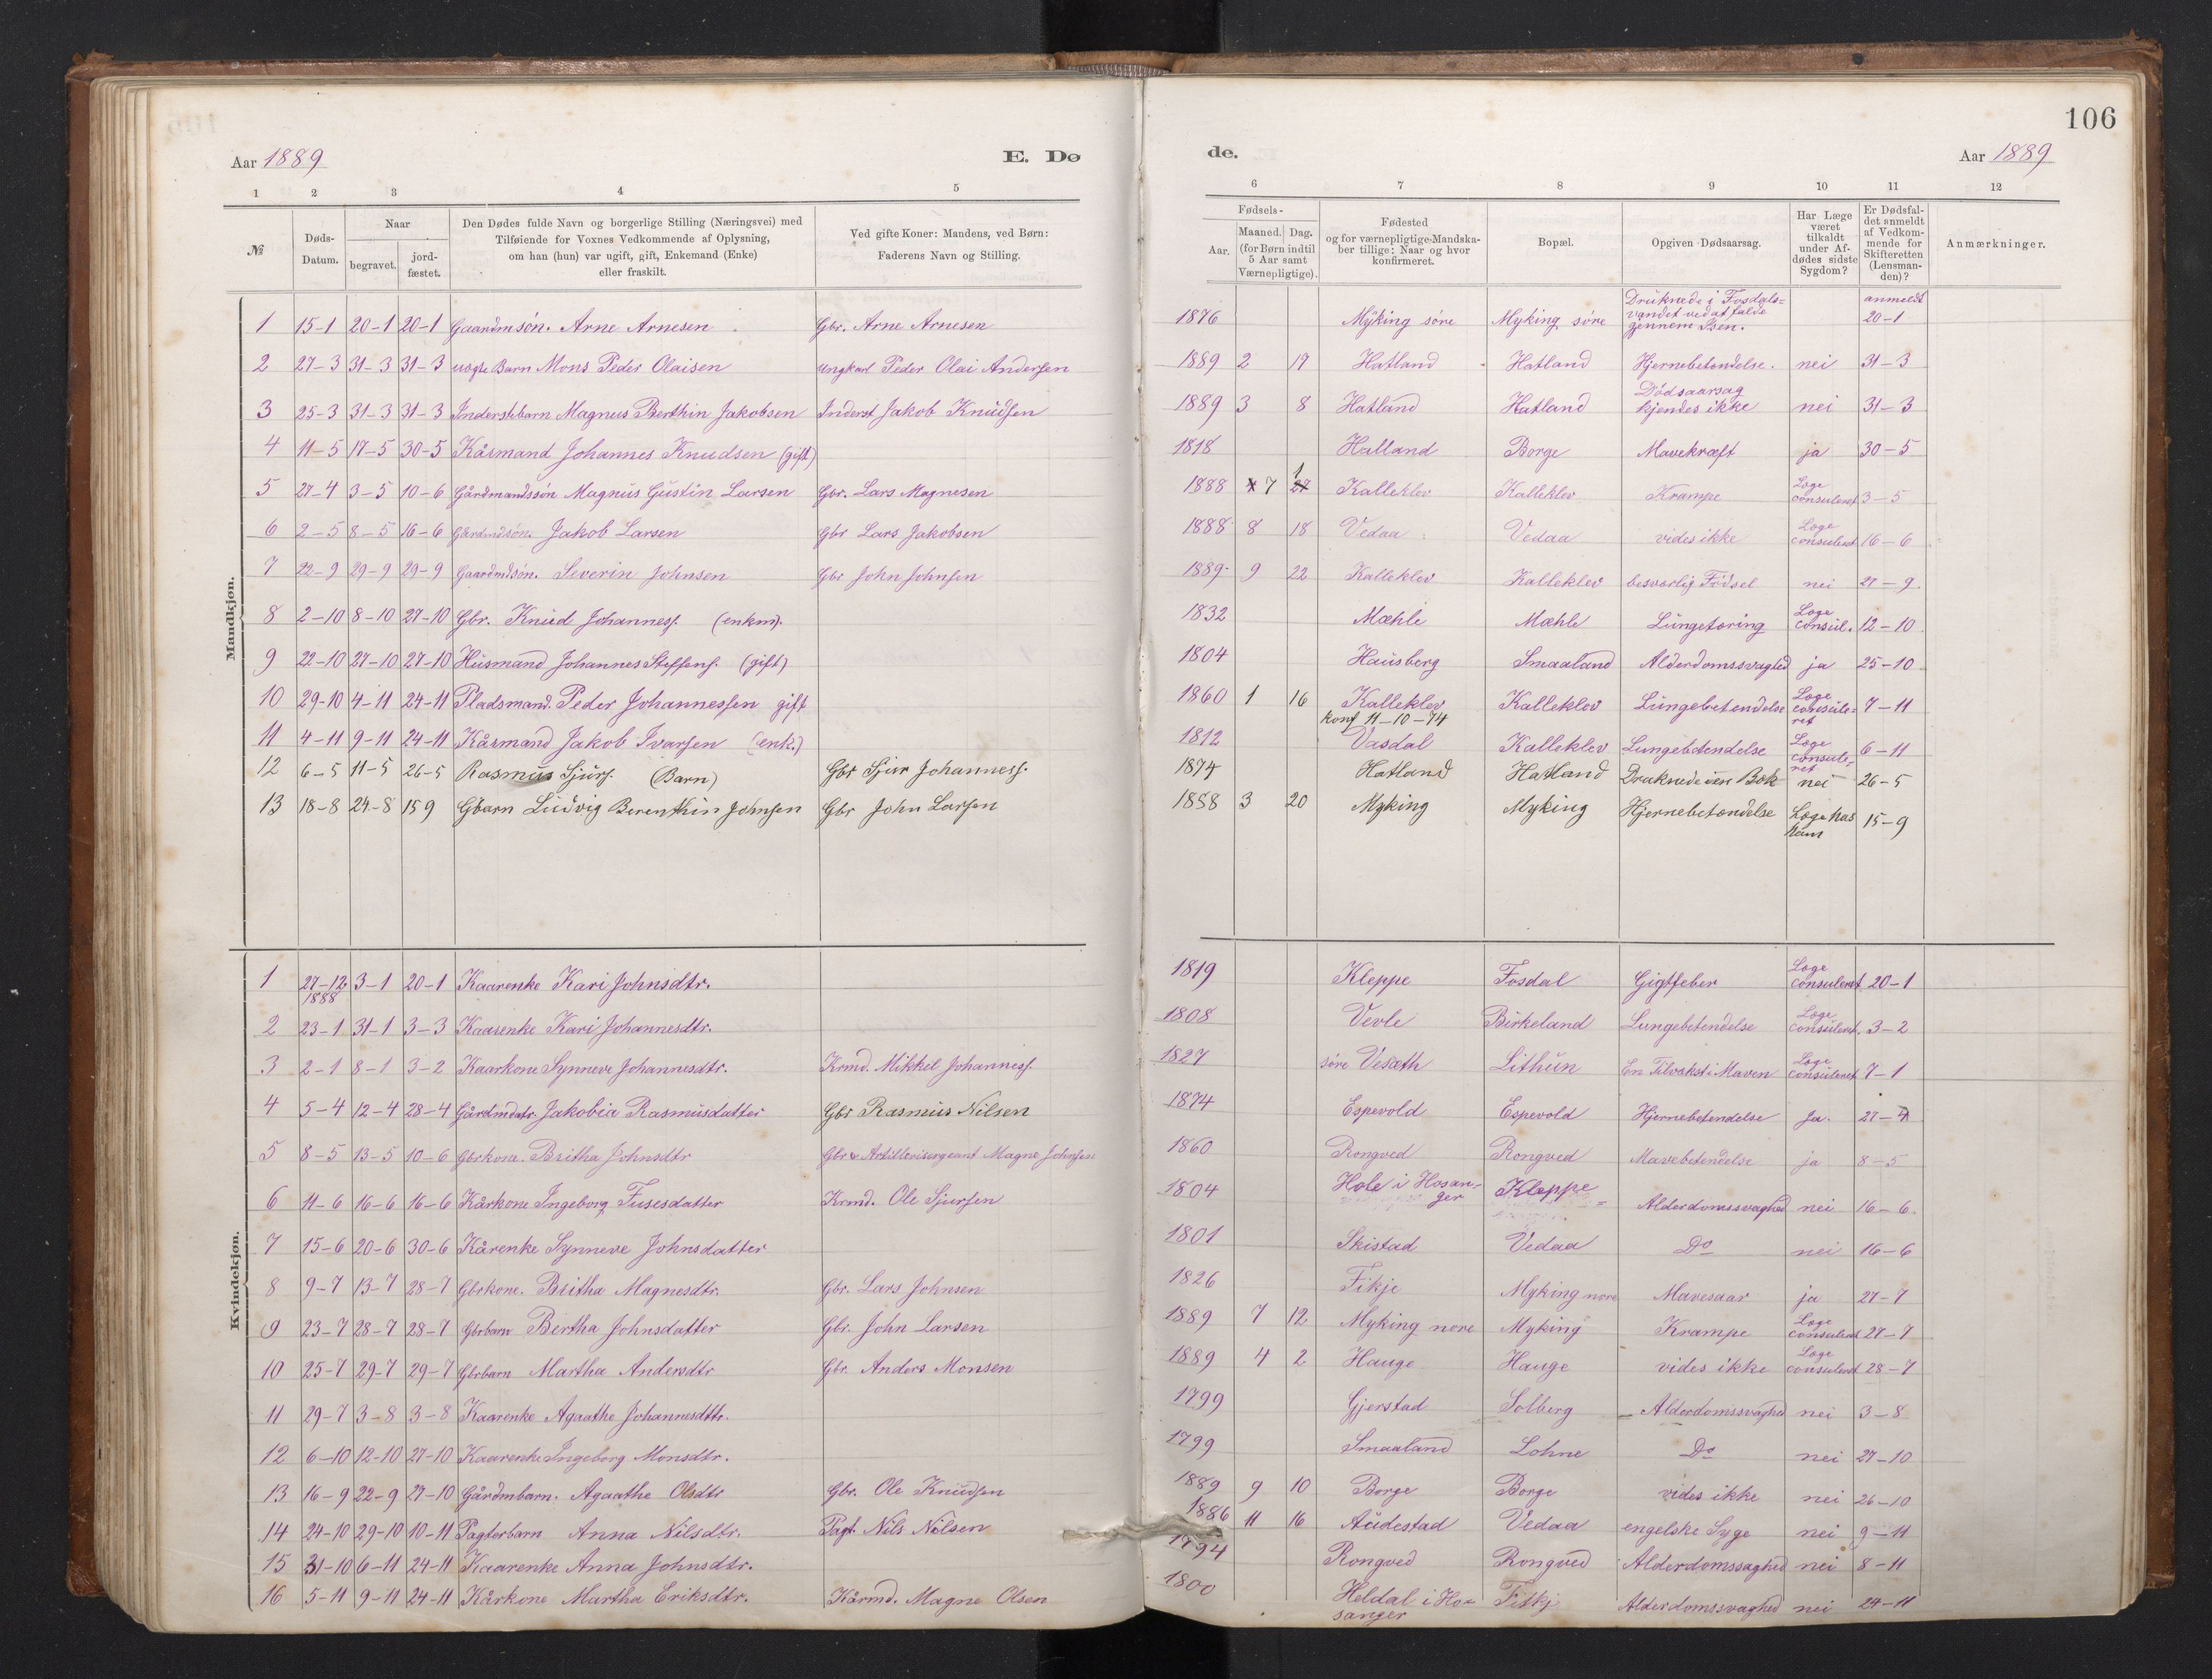 106
Aar 1889 E. Dø de. Aar 1889
1 2 3 4 5 6 7 8 9 10 11 12
№ Døds-Datum. Naar begravet. jord-fæstet. Den Dødes fulde Navn og borgerlige Stilling (Næringsvei) med Tilføiende for Voxnes Vedkommende af Oplysning, om han (hun) var ugift, gift, Enkemand (Enke) eller fraskilt. Ved gifte Koner: Mandens, ved Børn: Faderens Navn og Stilling. Fødsels- Aar. Maaned. Dag. (for Børn indtil 5 Aar samt Værnepligtige). Fødested og for værnepligtige Mandskaber tillige: Naar og hvor konfirmeret. Bopæl. Opgiven Dødsaarsag. Har Læge været tilkaldt under Afdødes sidste Sygdom? Er Dødsfaldet anmeldt af Vedkommende for Skifteretten (Lensmanden)? Anmærkninger.
Mandkjøn.
1 15-1 20-1 20-1 Gaardmsøn. Arne Arnesen Gbr. Arne Arnesen 1876 Myking søre Myking søre Druknede i Fosdalsvandet ved at falde gjennem Isen. anmeldt 20-1
2 27-3 31-3 31-3 uægte Barn Mons Peder Olaisen Ungkarl Peder Olai Andersen 1889 2 17 Hatland Hatland Hjernebetendelse. nei 31-3
3 25-3 31-3 31-3 Inderstebarn Magnus Berthin Jakobsen Inderst Jakob Knudsen 1889 3 8 Hatland Hatland Dødsaarsag kjendes ikke nei 31-3
4 11-5 17-5 30-5 Kårmand Johannes Knudsen (gift) 1818 Halland Borge Mavekræft ja 30-5
5 27-4 3-5 10-6 Gårdmandssøn Magnus Gustin Larsen Gbr. Lars Magnesen 1888 7 1 Kalleklev Kalleklev Krampe Læge consuleret 3-5
6 2-5 8-5 16-6 Gårdmdsøn. Jakob Larsen Gbr Lars Jakobsen 1888 8 18 Vedaa Vedaa vides ikke Læge consuleret 16-6
7 22-9 29-9 29-9 Gaardmdsøn. Severin Johnsen Gbr John Johnsen 1889 9 22 Kalleklev Kalleklev besværlig Fødsel nei 27-9.
8 2-10 8-10 27-10 Gbr. Knud Johanness. (enkm). 1832 Mæhle Mæhle Lungetæring Læge consul. 12-10
9 22-10 27-10 27-10 Husmand Johannes Steffens. (gift) 1804 Hausberg Smaaland Alderdomssvaghed ja 25-10
10 29-10 4-11 24-11 Pladsmand. Peder Johannessen gift 1860 1 16 Kalleklev konf 11-10-74 Kalleklev Lungebetendelse Læge consuleret 7-11
11 4-11 9-11 24-11 Kårmand Jakob Ivarsen (enk.) 1812 Vasdal Kalleklev Lungebetendelse Læge consuleret 6-11
12 6-5 11-5 26-5 Rasmus Sjurs. (Barn) Gbr Sjur Johanness. 1874 Hatland Hatland Druknede i en Bæk nei 26-5
13 18-8 24-8 15 9 Gbarn Ludvig Berenthin Johnsen Gbr John Larsen 1888 3 20 Myking Myking Hjernebetændelse Læge has ham 15-9
Kvindekjøn.
1 27-12 1888 3-1 20-1 Kaarenke Kari Johnsdtr. 1819 Kleppe Fosdal Gigtfeber Læge consuleret 20-1
2 23-1 31-1 3-3 Kaarenke Kari Johannesdtr. 1808 Vevle Birkeland Lungebetendelse Læge consuleret. 3-2
3 2-1 8-1 3-2 Kaarkone Synneve Johannesdtr. Krmd. Mikkel Johanness. 1827 søre Vesæth Lithun En Tilvækst i Maven Læge consuleret 7-1
4 5-4 12-4 28-4 Gårdmdatr. Jakobia Rasmusdatter Gbr Rasmus Nilsen 1874 Espevold Espevold Hjernebetendelse Ja. 27-4
5 8-5 13-5 10-6 Gbrkone. Britha Johnsdtr Gbr & Artillerisergeant Magne Johnsen 1860 Rongved Rongved Mavebetendelse ja 8-5
6 11-6 16-6 16-6 Kårkone Ingeborg Fusesdatter Krmd. Ole Sjursen 1804 Hole i Hosanger Kleppe Alderdomssvaghed nei 16-6.
7 15-6 20-6 30-6 Kårenke Synneve Johnsdatter 1801 Skistad Vedaa Do nei 16-6
8 9-7 13-7 28-7 Gbrkone. Britha Magnesdtr. Gbr. Lars Johnsen 1826 Fikje Myking nore Mavesaar ja 27-7
9 23-7 28-7 28-7 Gbrbarn Bertha Johnsdatter Gbr. John Larsen 1889 7 12 Myking nore Myking Krampe Læge consuleret 27-7
10 25-7 29-7 29-7 Gbrbarn Martha Andersdtr Gbr. Anders Monsen 1889 4 2 Hauge Hauge vides ikke Læge consuleret 28-7
11 29-7 3-8 3-8 Kaarenke Agaathe Johannesdtr. 1799 Gjerstad Solberg Alderdomssvaghed nei 3-8
12 6-10 12-10 27-10 Kaarenke Ingeborg Monsdtr. 1799 Smaaland Lohne Do nei 27-10
13 16-9 22-9 27-10 Gårdmbarn. Agaathe Olsdtr Gbr. Ole Knudsen 1889 9 10 Borge Borge vides ikke nei 26-10
14 24-10 29-10 10-11 Pagterbarn Anna Nilsdtr. Pagt. Nils Nilsen 1886 11 16 Audestad Vedaa engelske Syge nei 9-11
15 31-10 6-11 24-11 Kaarenke Anna Johnsdtr. 1794 Rongved Rongved Alderdomssaghed nei 8-11
16 5-11 9-11 24-11 Kårkone Martha Eriksdtr. Kårmd. Magne Olsen 1800 Heldal i Hosanger Fitkj Alderdomssvaghed nei 24-11